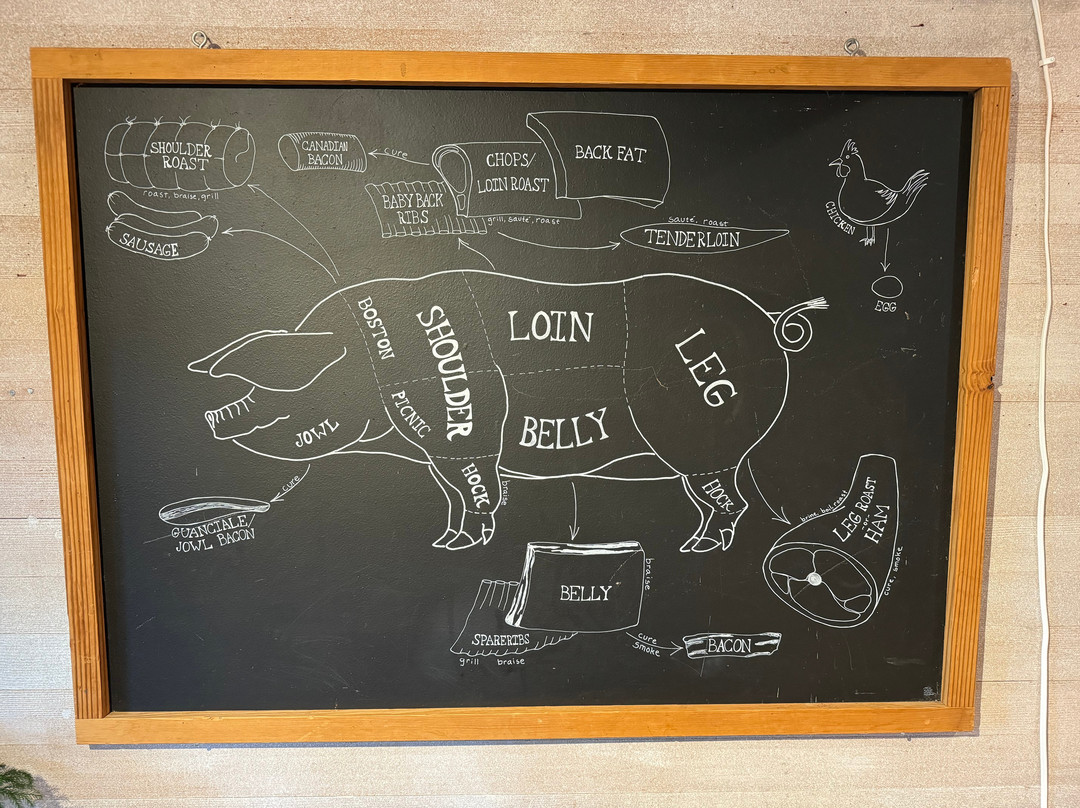 SHOULDER
ROAST
roast, braise, grill
SAUSAGE
CANADIAN
BACON
cure
BABY BACK
RIBS
CHOPS/
LOIN ROAST
grill, sauté, roast
BACK FAT
sauté, roast
TENDERLOIN
CHICKEN
EGG
BOSTON
SHOULDER
LOIN
LEG
PICNIC
BELLY
JOWL
HOCK
braise
HOCK
cure
GUANCIALE/
JOWL BACON
brine, boil, roast
LEG ROAST
or
HAM
cure, smoke
BELLY
braise
SPARERIBS
grill braise
cure
smoke
BACON